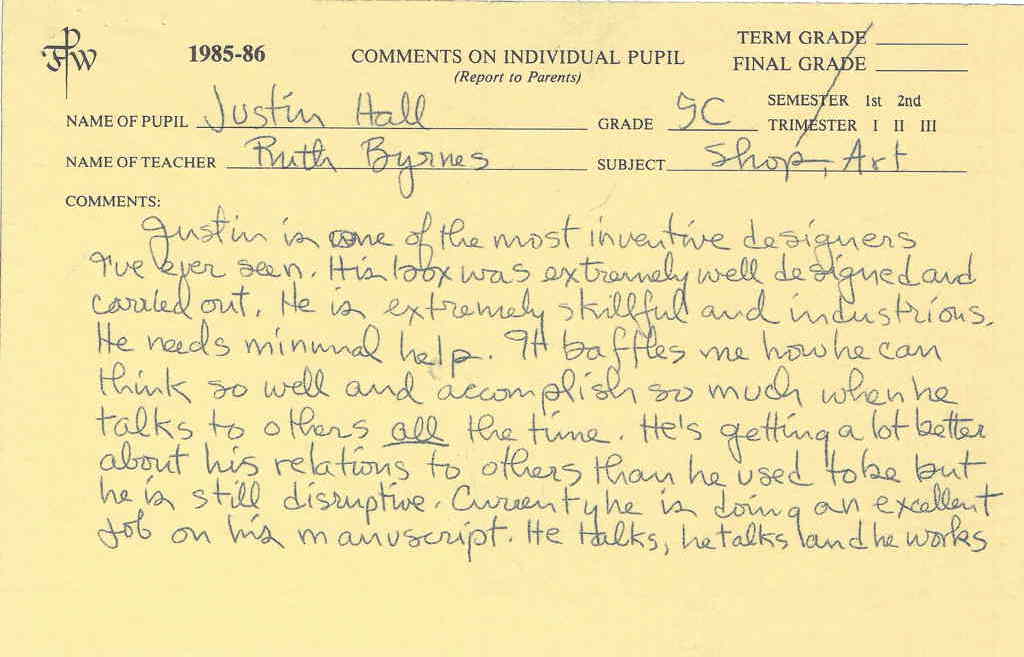 FPW
1985-86 COMMENTS ON INDIVIDUAL PUPIL TERM GRADE
(Report to Parents) FINAL GRADE
NAME OF PUPIL Justin Hall GRADE 5C SEMESTER 1st 2nd
TRIMESTER I II III
NAME OF TEACHER Ruth Byrnes SUBJECT Shop, Art
COMMENTS:
Justin is one of the most inventive designers
I've ever seen. His box was extremely well designed and
carried out. He is extremely skillful and industrious.
He needs minimal help. It baffles me how he can
think so well and accomplish so much when he
talks to others all the time. He's getting a lot better
about his relations to others than he used to be but
he is still disruptive. Currenty he is doing an excellent
job on his manuscript. He talks, he talks and he works